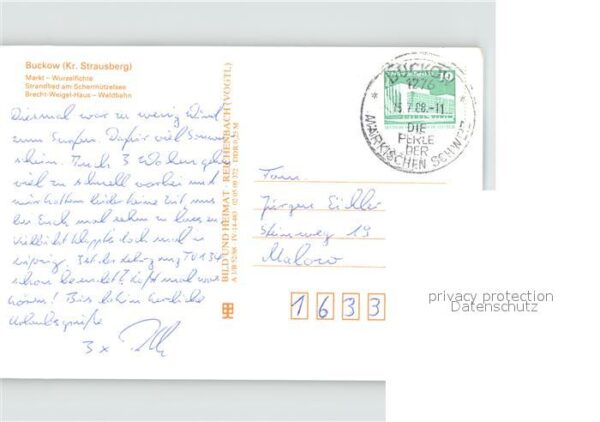 Buckow (Kr. Strausberg)
Markt – Wurzelfichte
Strandbad am Schermützelsee
Brecht-Weigel-Haus – Waldbahn
Diesmal war zu wenig Wind
zum Surfen. Dafür viel Sonnen-
schein. Auch 3 Wochen gehen
viel zu schnell vorbei und
wir hatten leider keine Zeit, uns
bei Euch mal sehen zu lassen,
vielleicht klappt es doch noch in
schon beendet? Laßt mal was
hören! Bis dahin herzliche
Urlaubsgrüße
3 x
BILD UND HEIMAT · REICHENBACH (VOGTL)
BUCKOW
1276
15.7.88.-11
DIE
PERLE
DER
MÄRKISCHEN SCHWEIZ
10
Fam.
Jürgen Eichler
Steinweg 19
Malow
1633
privacy protection
Datenschutz